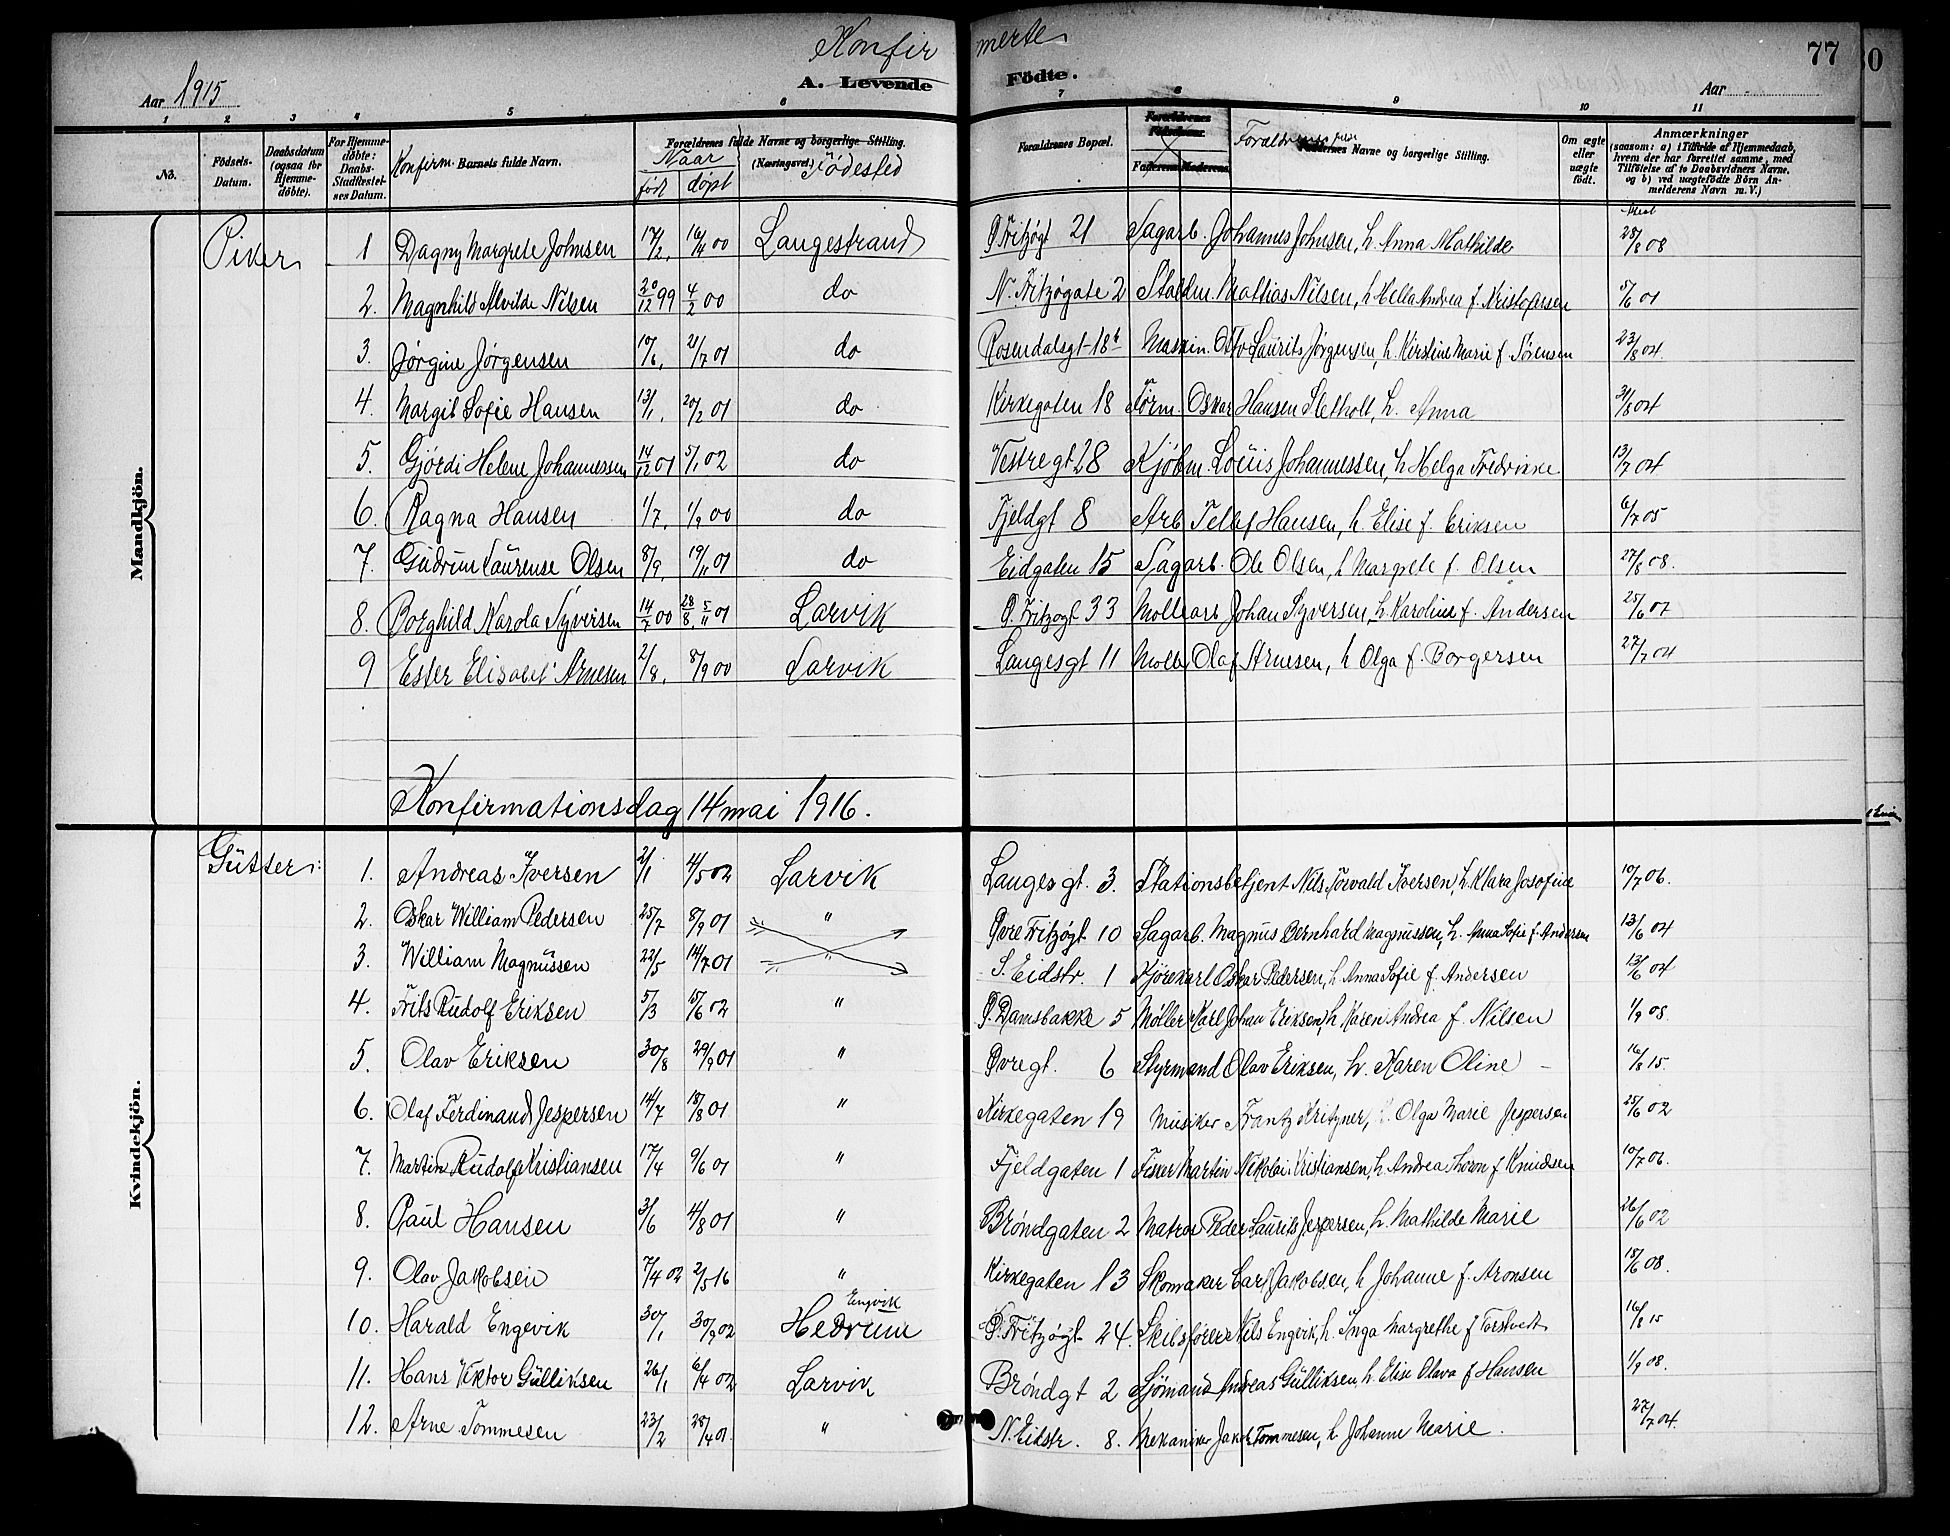 Konfirmerte
77
A. Levende Födte.
Aar 1915
Aar
1 2 3 4 5 6 7 8 9 10 11
No.
Födsels-Datum.
Daabsdatum (ogsaa for Hjemme-döbte).
For Hjemme-döbte: Daabs-Stadfæstel-ses Datum.
Konfirm. Barnets fulde Navn.
Forældrenes fulde Navne og borgerlige Stilling. (Næringsvei.)
Naar født døpt Födested
Forældrenes Bopæl.
Forældrenes Födselsaar. Faderens Moderens
Foraldrenes fulde Navne og borgerlige Stilling.
Om ægte eller uægte födt.
Anmærkninger (saasom: a) i Tilfælde af Hjemmedaab, hvem der har forrettet samme, med Tilföielse af to Daabsvidners Navne, og b) ved uægtefödte Börn An-melderens Navn m. V.)
Mandkjön.
Piker
1 Dagny Margrete Johnsen 17/2, 16/4 00 Langestrand Ø Fritzøgt 21 Sagarb. Johannes Johnsen, h. Anna Mathilde 28/8 08
2. Magnhild Alvilde Nilsen 20/12 99 4/2 00 do N. Fritzøgate 2 Staldm. Mathias Nilsen, h Hella Andrea f. Kristofersen 5/6 01
3. Jørgine Jørgensen 10/6, 21/7 01 do Rosendalsgt 18b Maskin. Olav Laurits Jørgensen, h. Kirstine Marie f. Sørensen 23/8 04
4. Margit Sofie Hansen 13/1, 20/2 01 do Kirkegaten 18 Førm. Oskar Hansen Sletholt, h. Anna 31/8 04
5. Gjørdi Helene Johannessen 14/12 01 5/1 02 do Vestregt 28 Kjøbm. Louis Johannessen, h Helga Fredrikke 13/7 04
6. Ragna Hansen 1/7, 1/9 00 do Fjeldgt 8 Arb Tellef Hansen, h. Elise f. Eriksen 6/7 05
7. Gudrun Laurense Olsen 8/9, 19/11 01 do Eidgaten 15 Sagarb. Ole Olsen, h Margrete f. Olsen 27/8 08.
8. Borghild Karola Syversen 14/7 00 28/8, 5/11 01 Larvik Ø. Fritzøgt 33 Møllearb Johan Syversen, h Karoline f. Andersen 25/6 07
9 Ester Elisabet Arnesen 2/8, 8/9 00 Larvik Langesgt 11 Møller Olaf Arnesen, h Olga f. Borgersen 27/7 04
Konfirmationsdag 14 mai 1916.
Kvindekjön.
Gutter:
1. Andreas Iversen 2/1 4/5 02 Larvik Langesgt. 3. Stationsbetjent Nils Torvald Iversen, h. Klara Josofine 10/7 06.
2. Oskar William Pedersen 25/7 8/9 01 " Øvre Fritzøgt 10 Sagarb. Magnus Bernhard Magnussen, h. Anna Sofie f. Andersen 13/6 04
3. William Magnussen 22/5 14/7 01 " S. Eidstr. 1 Kjørekarl Oskar Pedersen, h Anna Sofie f. Andersen 13/6 04
4. Frits Rudolf Eriksen 5/3 15/6 02 " Ø. Damsbakke 5 Møller Karl Johan Eriksen, h Karen Andrea f. Nilsen 1/9 08.
5. Olav Eriksen 30/8 29/9 01 " Øvregt. 6 Styrmand Olav Eriksen, h. Karen Oline 16/8 15.
6. Olaf Ferdinand Jespersen 14/7 18/8 01 " Kirkegaten 19 Musiker Frantz Kritzner, Olga Marie Jespersen 25/6 02
7. Martin Rudolf Kristiansen 17/4 9/6 01 " Fjeldgaten 1 Fisker Martin Nikolai Kristiansen, h. Andrea f. Knudsen 10/7 06.
8. Paul Hansen 3/6 4/8 01 " Brøndgaten 2 Matros Peder Laurits Jespersen, h. Mathilde Marie 26/6 02
9. Olav Jakobsen 7/4 02 2/5 16 " Kirkegaten 13 Skomaker Carl Jakobsen, h Johanne f. Aronsen 18/6 08.
10. Harald Engevik 30/1 30/9 02 Engvik Hedrum Ø. Fritzøgt 24. Skibsfører Nils Engevik, h. Inga Margrethe f Torstvedt 16/8 15
11. Hans Viktor Gulliksen 26/1 6/4 02 Larvik Brøndgt 2 Sjømand Andreas Gulliksen, h. Elise Olava f Hansen 1/9 08.
12. Arne Tommesen 23/2 28/4 01. " N. Eidstr. 8. Mekaniker Jakob Tommesen, h. Johanne Marie. 27/7 04.